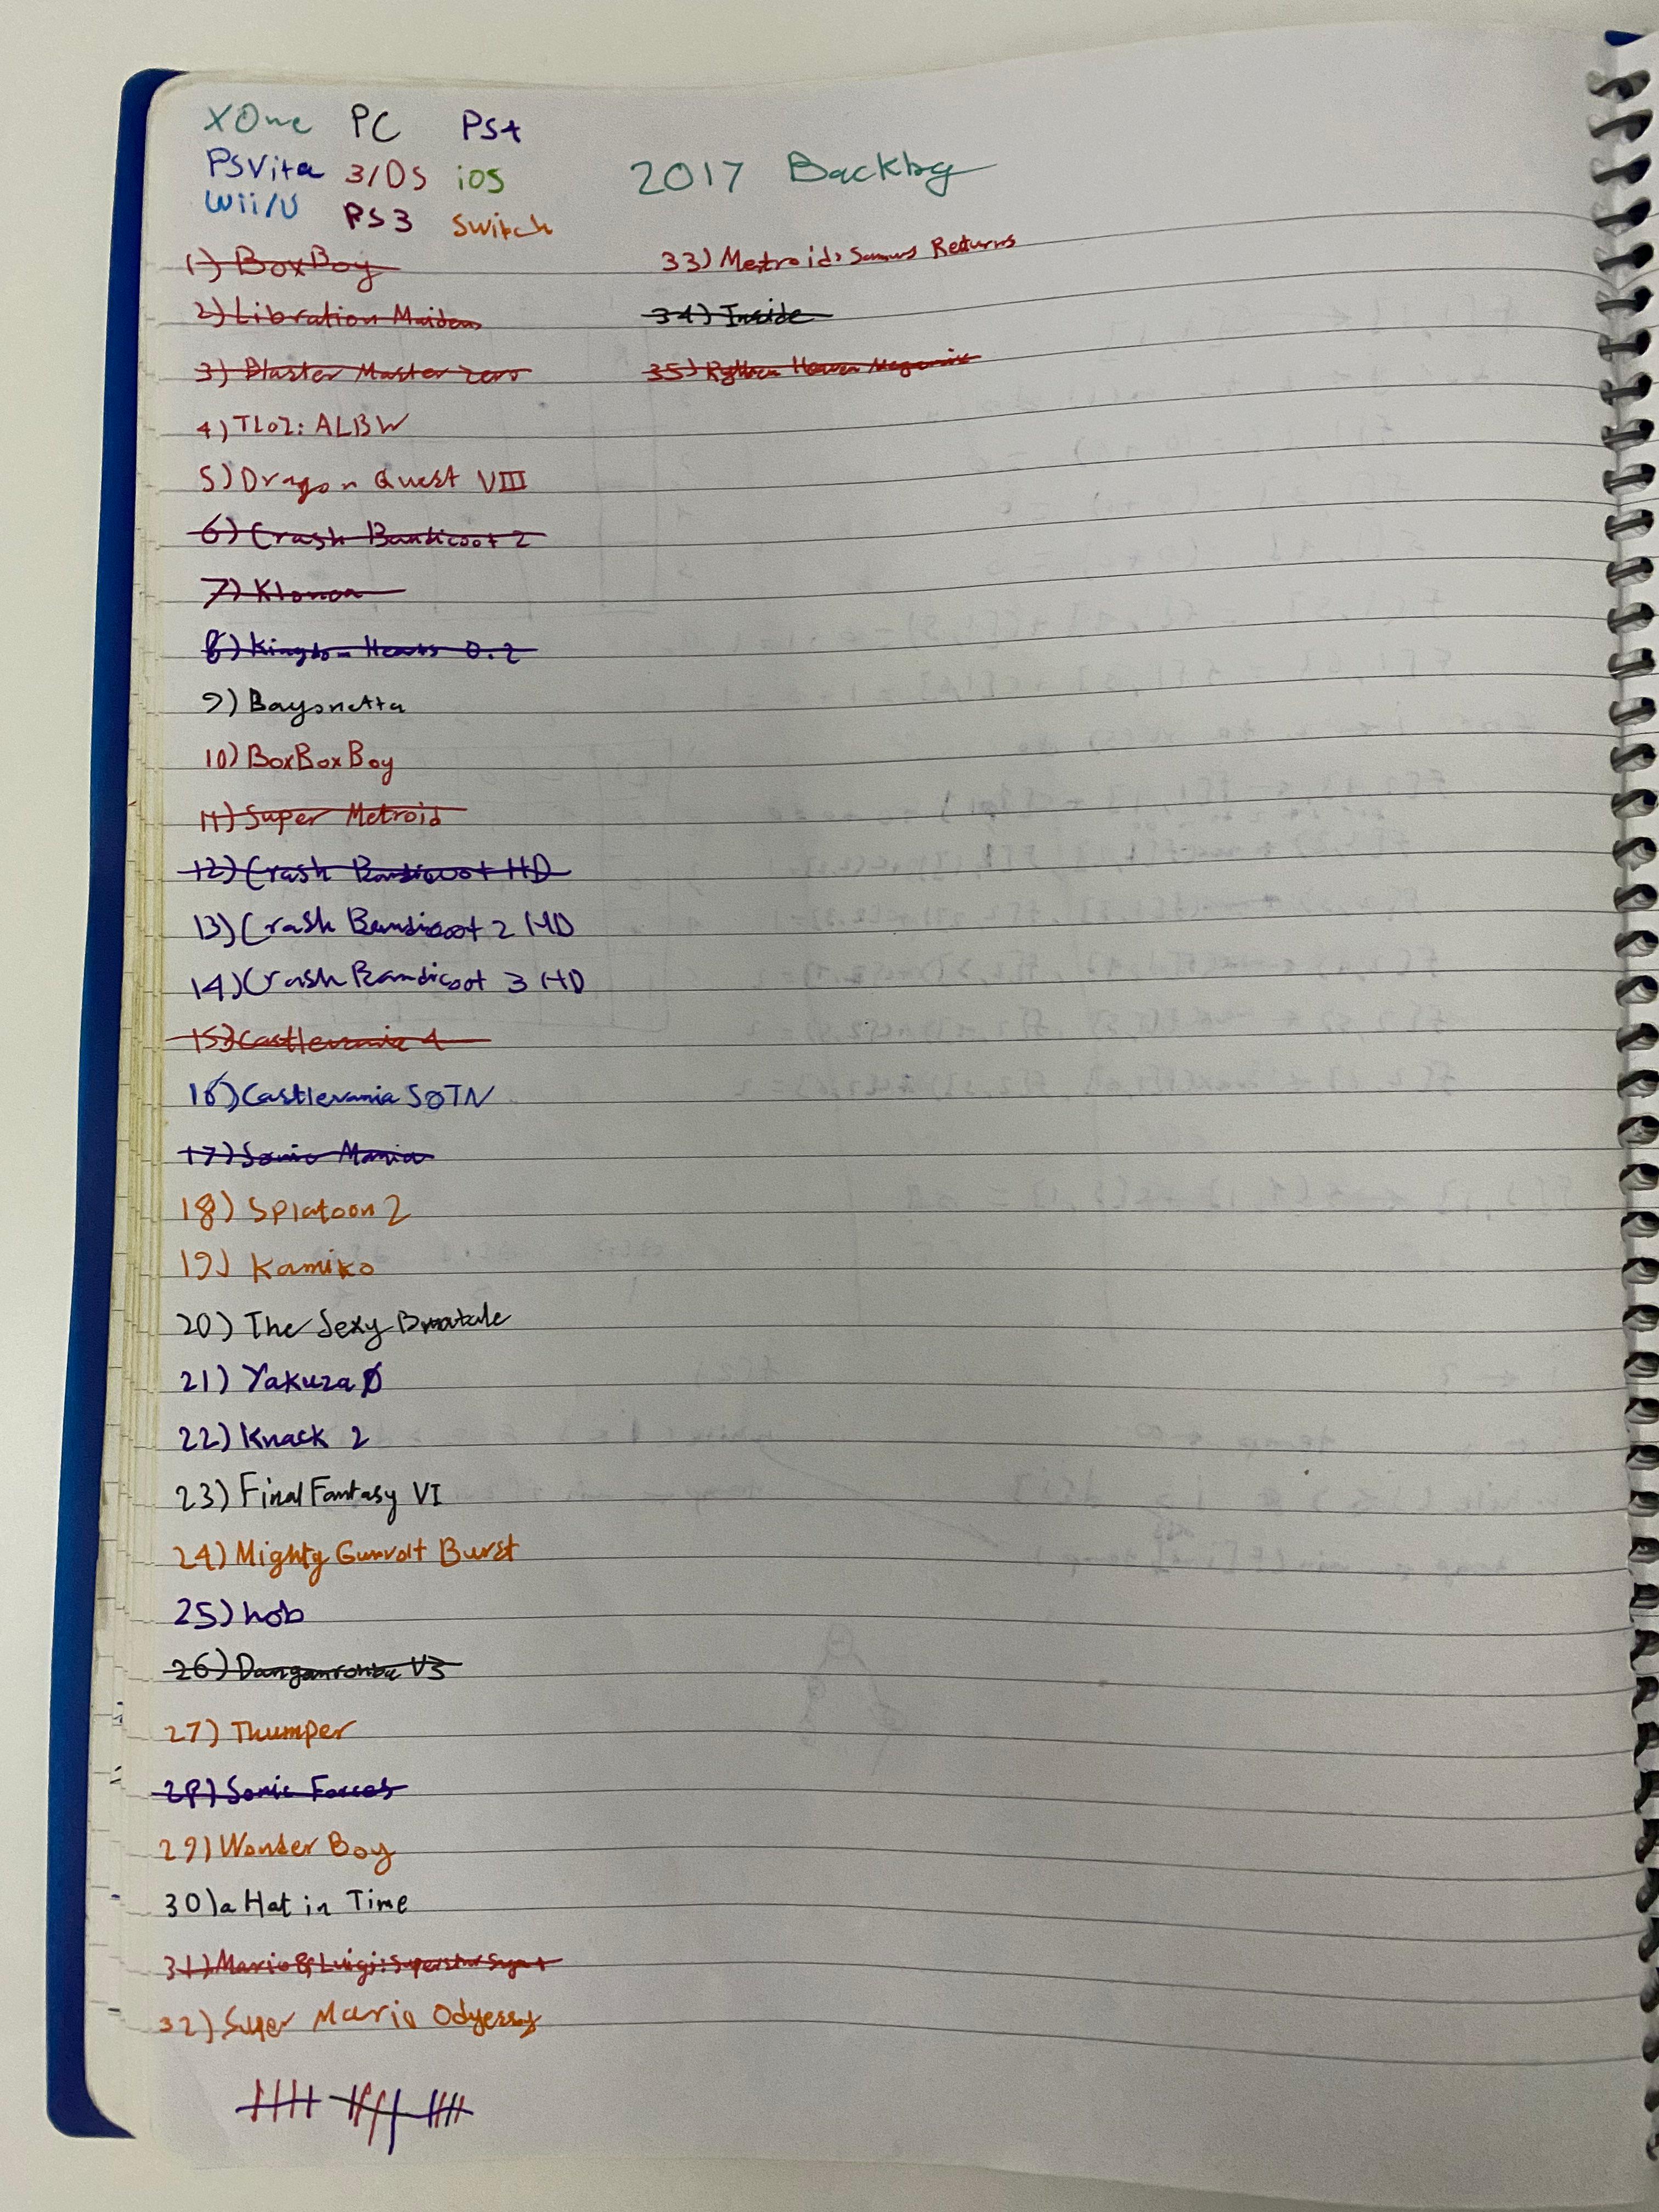 XOne PC PS4
PSVita 3/DS iOS
Wii/U PS3 Switch
2017 Backlog
1) BoxBoy
2) Libration Maiden
3) Blaster Master Zero
4) TLOZ: ALBW
5) Dragon Quest VIII
6) Crash Bandicoot 2
7) Klonoa
8) Kingdom Hearts 0.2
9) Bayonetta
10) BoxBoxBoy
11) Super Metroid
12) Crash Bandicoot HD
13) Crash Bandicoot 2 HD
14) Crash Bandicoot 3 HD
15) Castlevania 4
16) Castlevania SOTN
17) Sonic Mania
18) Splatoon 2
19) Kamiko
20) The Sexy Brutale
21) Yakuza 0
22) Knack 2
23) Final Fantasy VI
24) Mighty Gunvolt Burst
25) hob
26) Danganronpa V3
27) Thumper
28) Sonic Forces
29) Wonder Boy
30) a Hat in Time
31) Mario & Luigi: Superstar Saga +
32) Super Mario Odyessy
33) Metroid: Samus Returns
34) Inside
35) Rythm Heaven Megamix